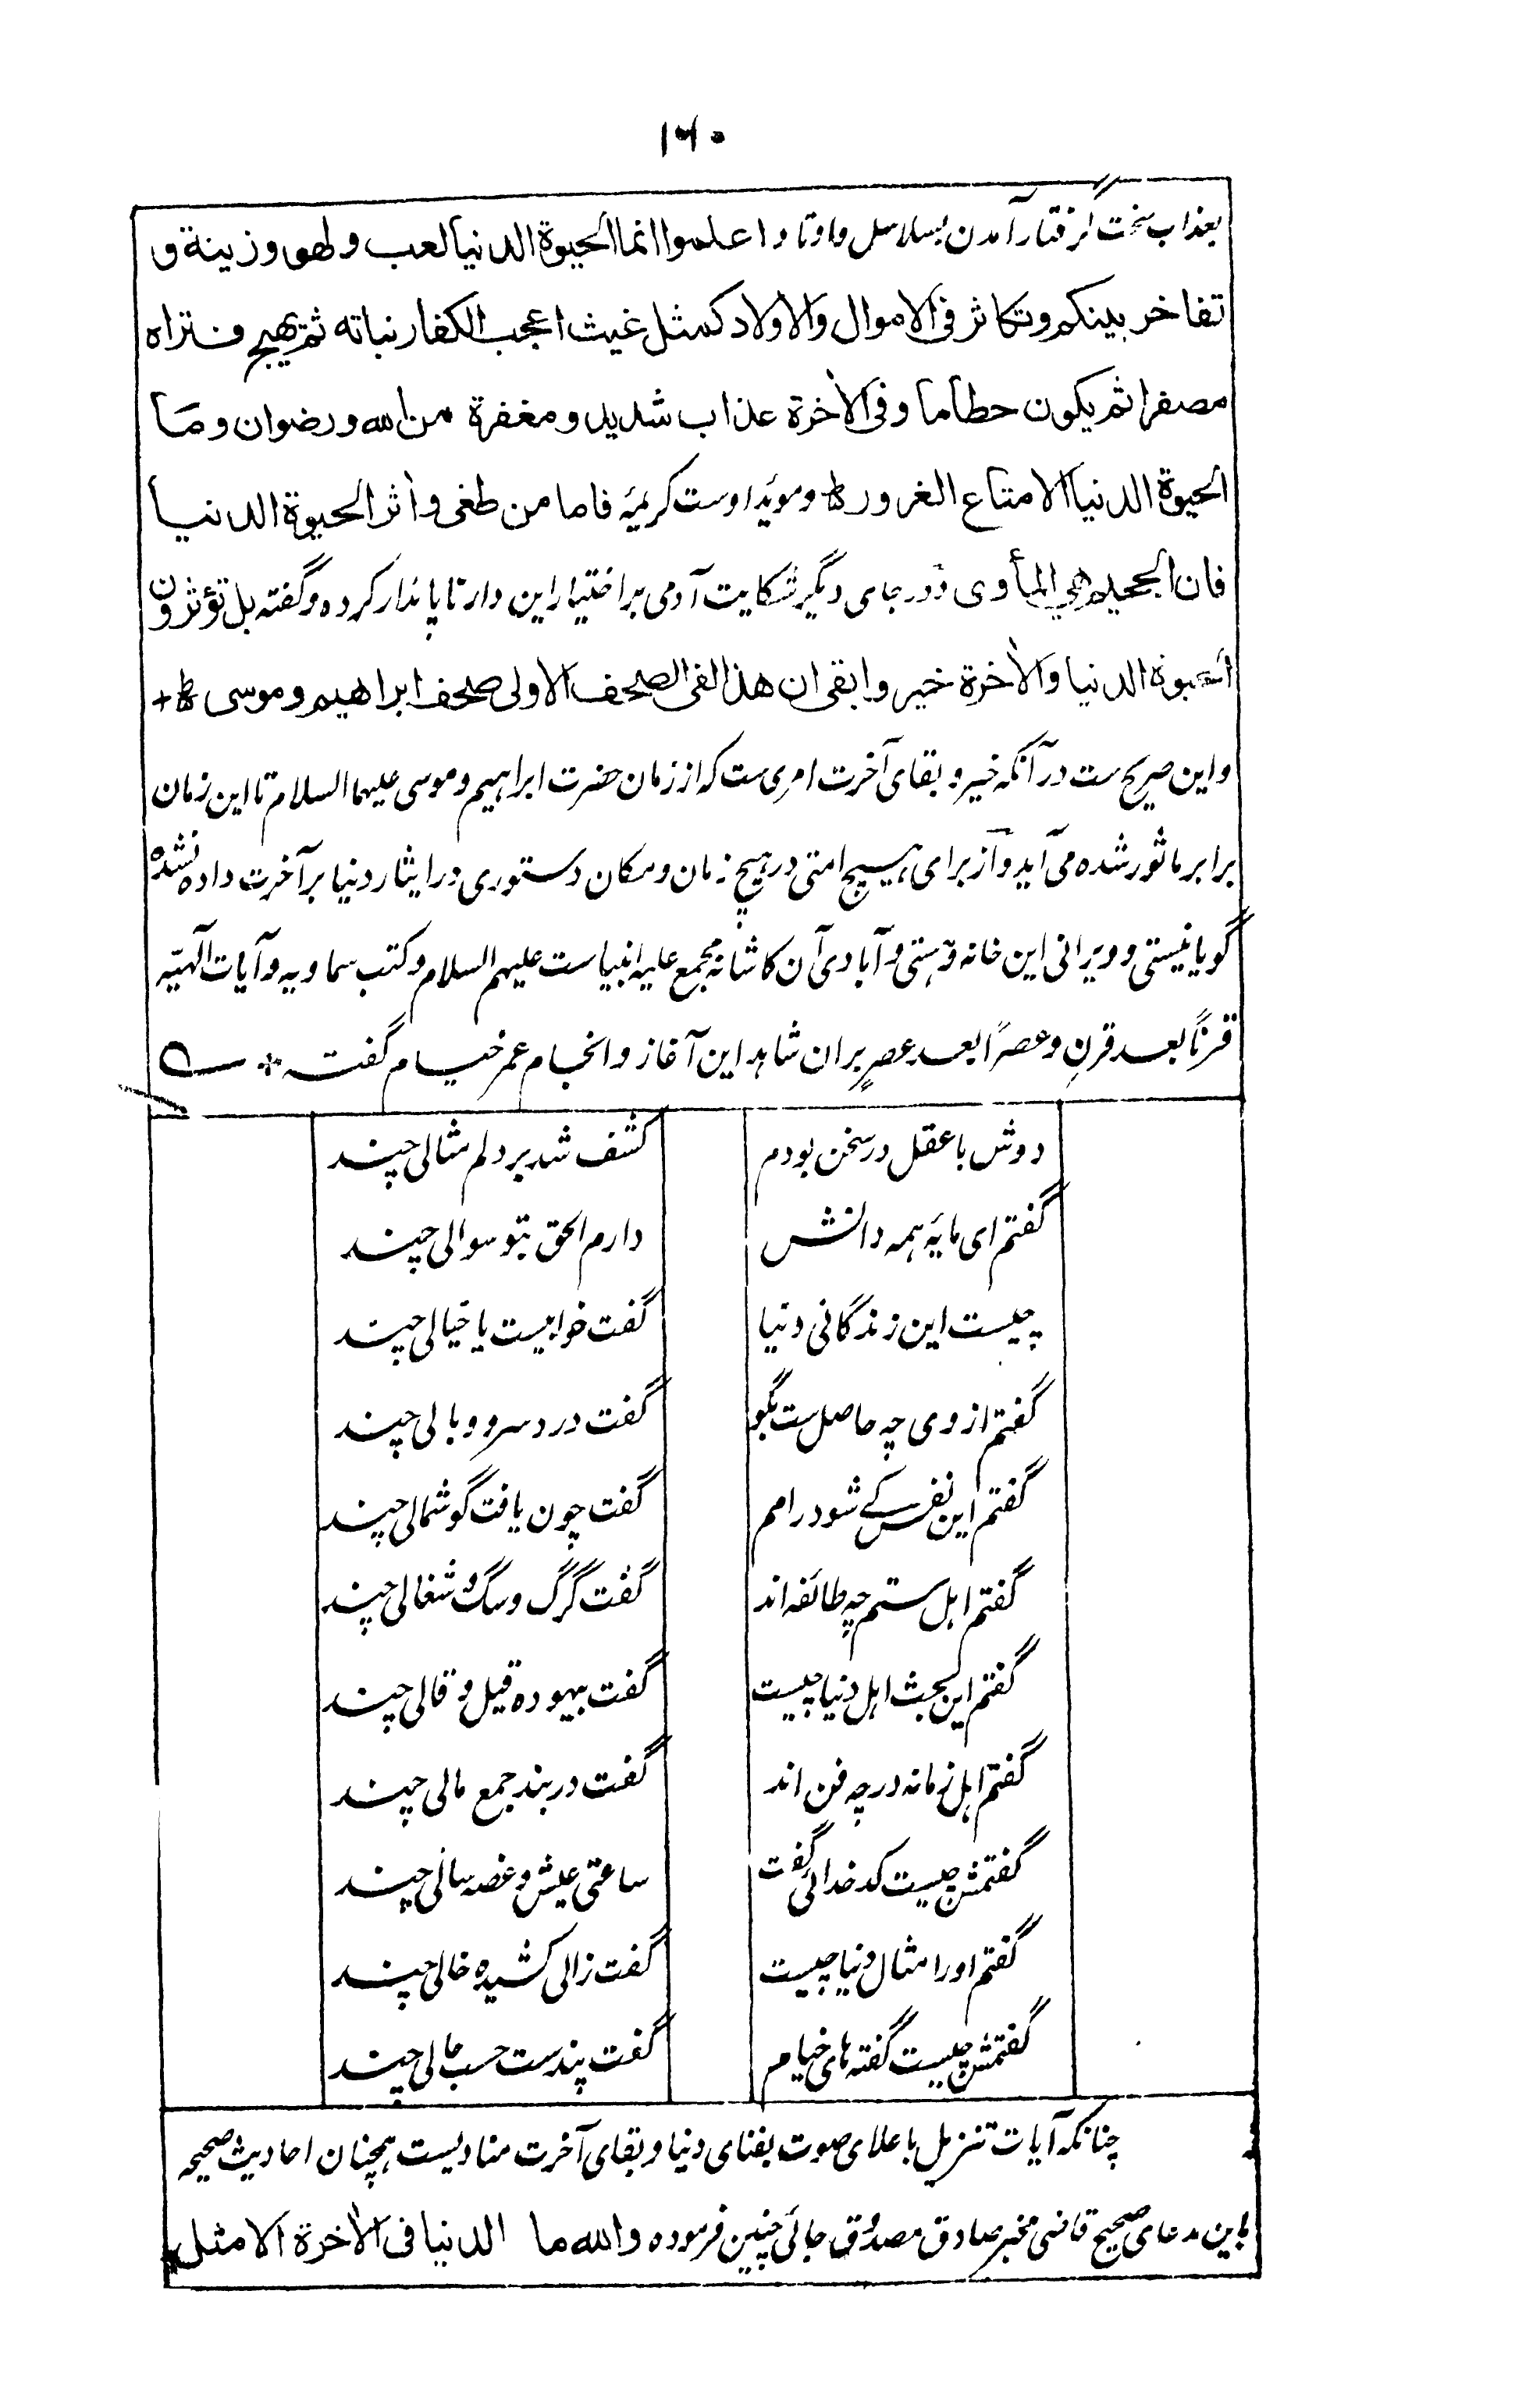 ۱۶۰
بعذاب سخت گرفتار آمدن بسلاسل واوتاد اعلموا انما الحیوة الدنیا لعب ولهو وزینة و
تفاخر بینکم وتکاثر فی الاموال والاولاد کمثل غیث اعجب الکفار نباته ثم یهیج فتراه
مصفرا ثم یکون حطاما وفی الأخرة عذاب شدید ومغفرة من الله ورضوان وما
الحیوة الدنیا الا متاع الغرور ط ومؤید اوست کریمۀ فاما من طغی وأثر الحیوة الدنیا
فان الجحیم هی المأوی ودر جای دیگر شکایت آدمی بر اختیار این دار ناپائدار کرده وگفته بل تؤثرون
الحیوة الدنیا والأخرة خیر وابقی ان هذا لفی الصحف الاولی صحف ابراهیم وموسی ط +
واین صریح ست در آنکه خیر وبقای آخرت امریست که از زمان حضرت ابراهیم وموسی علیهما السلام تا این زمان
برابر ماثور شده می آید واز برای هیچ امتی در هیچ زمان ومکان دستوری در ایثار دنیا بر آخرت داده نشده
گویا نیستی وویرانی این خانه وهستی وآبادی آن کاشانه مجمع علیه انبیاست علیهم السلام وکتب سماویه وآیات آلهیه
قرناً بعد قرنِ وعصراً بعد عصرٍ بران شاهد این آغاز وانجام عمر خیام گفته *
دوش با عقل در سخن بودم کشف شد بر دلم مثالی چند
گفتم ای مایۀ همه دانش دارم الحق بتو سوالی چند
چیست این زندگانی دنیا گفت خوابیست یا خیالی چند
گفتم از وی چه حاصل ست بگو گفت درد سر ووبالی چند
گفتم این نفس کے شود رامم گفت چون یافت گوشمالی چند
گفتم اهل ستم چه طائفه اند گفت گرگ وسگ وشغالی چند
گفتم این بحث اهل دنیا چیست گفت بیهوده قیل وقالی چند
گفتم اهل زمانه در چه فن اند گفت در بند جمع مالی چند
گفتمش چیست کدخدائی گفت ساعتی عیش وغصه سالی چند
گفتم اورا مثال دنیا چیست گفت زالی کشیده خالی چند
گفتمش چیست گفته های خیام گفت پندست حسب حالی چند
چنانکه آیات تنزیل باعلای صوت بفنای دنیا وبقای آخرت منادیست همچنان احادیث صحیحه
باین مدعای صحیح قاضی مخبر صادق مصدوق جائی چنین فرموده والله ما الدنیا فی الأخرة الا مثل